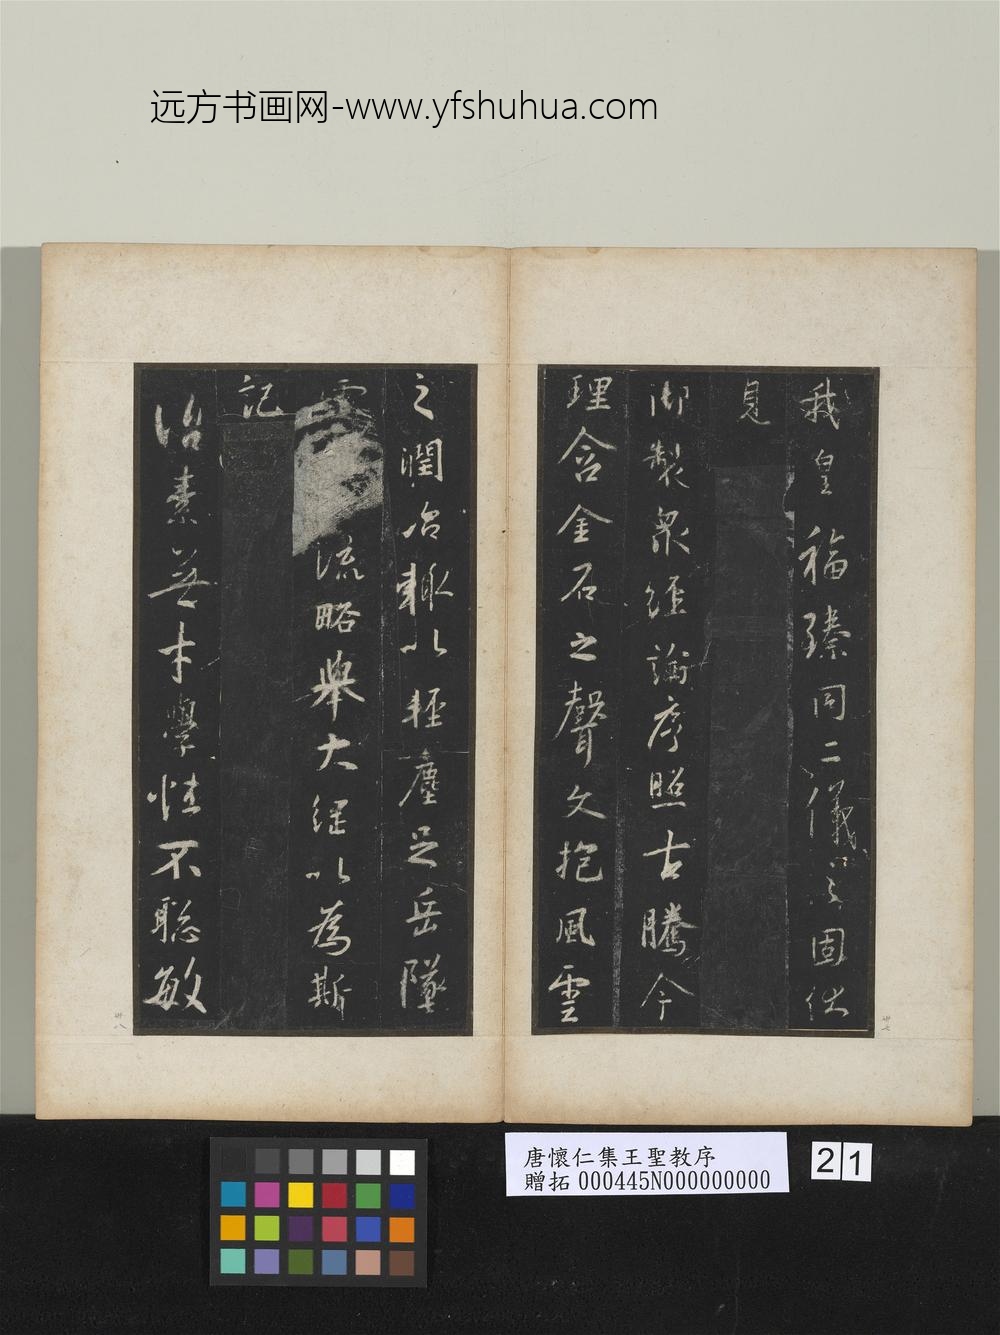 远方书画网-www.yfshuhua.com
我皇福臻同二儀之固伏
見
御製眾經論序照古騰今
理含金石之聲文抱風雲
卅七
之潤治輒以輕塵足岳墜
流略舉大綱以為斯
記
治素無才學性不聰敏
卅八
唐懷仁集王聖教序
贈拓 000445N000000000
21